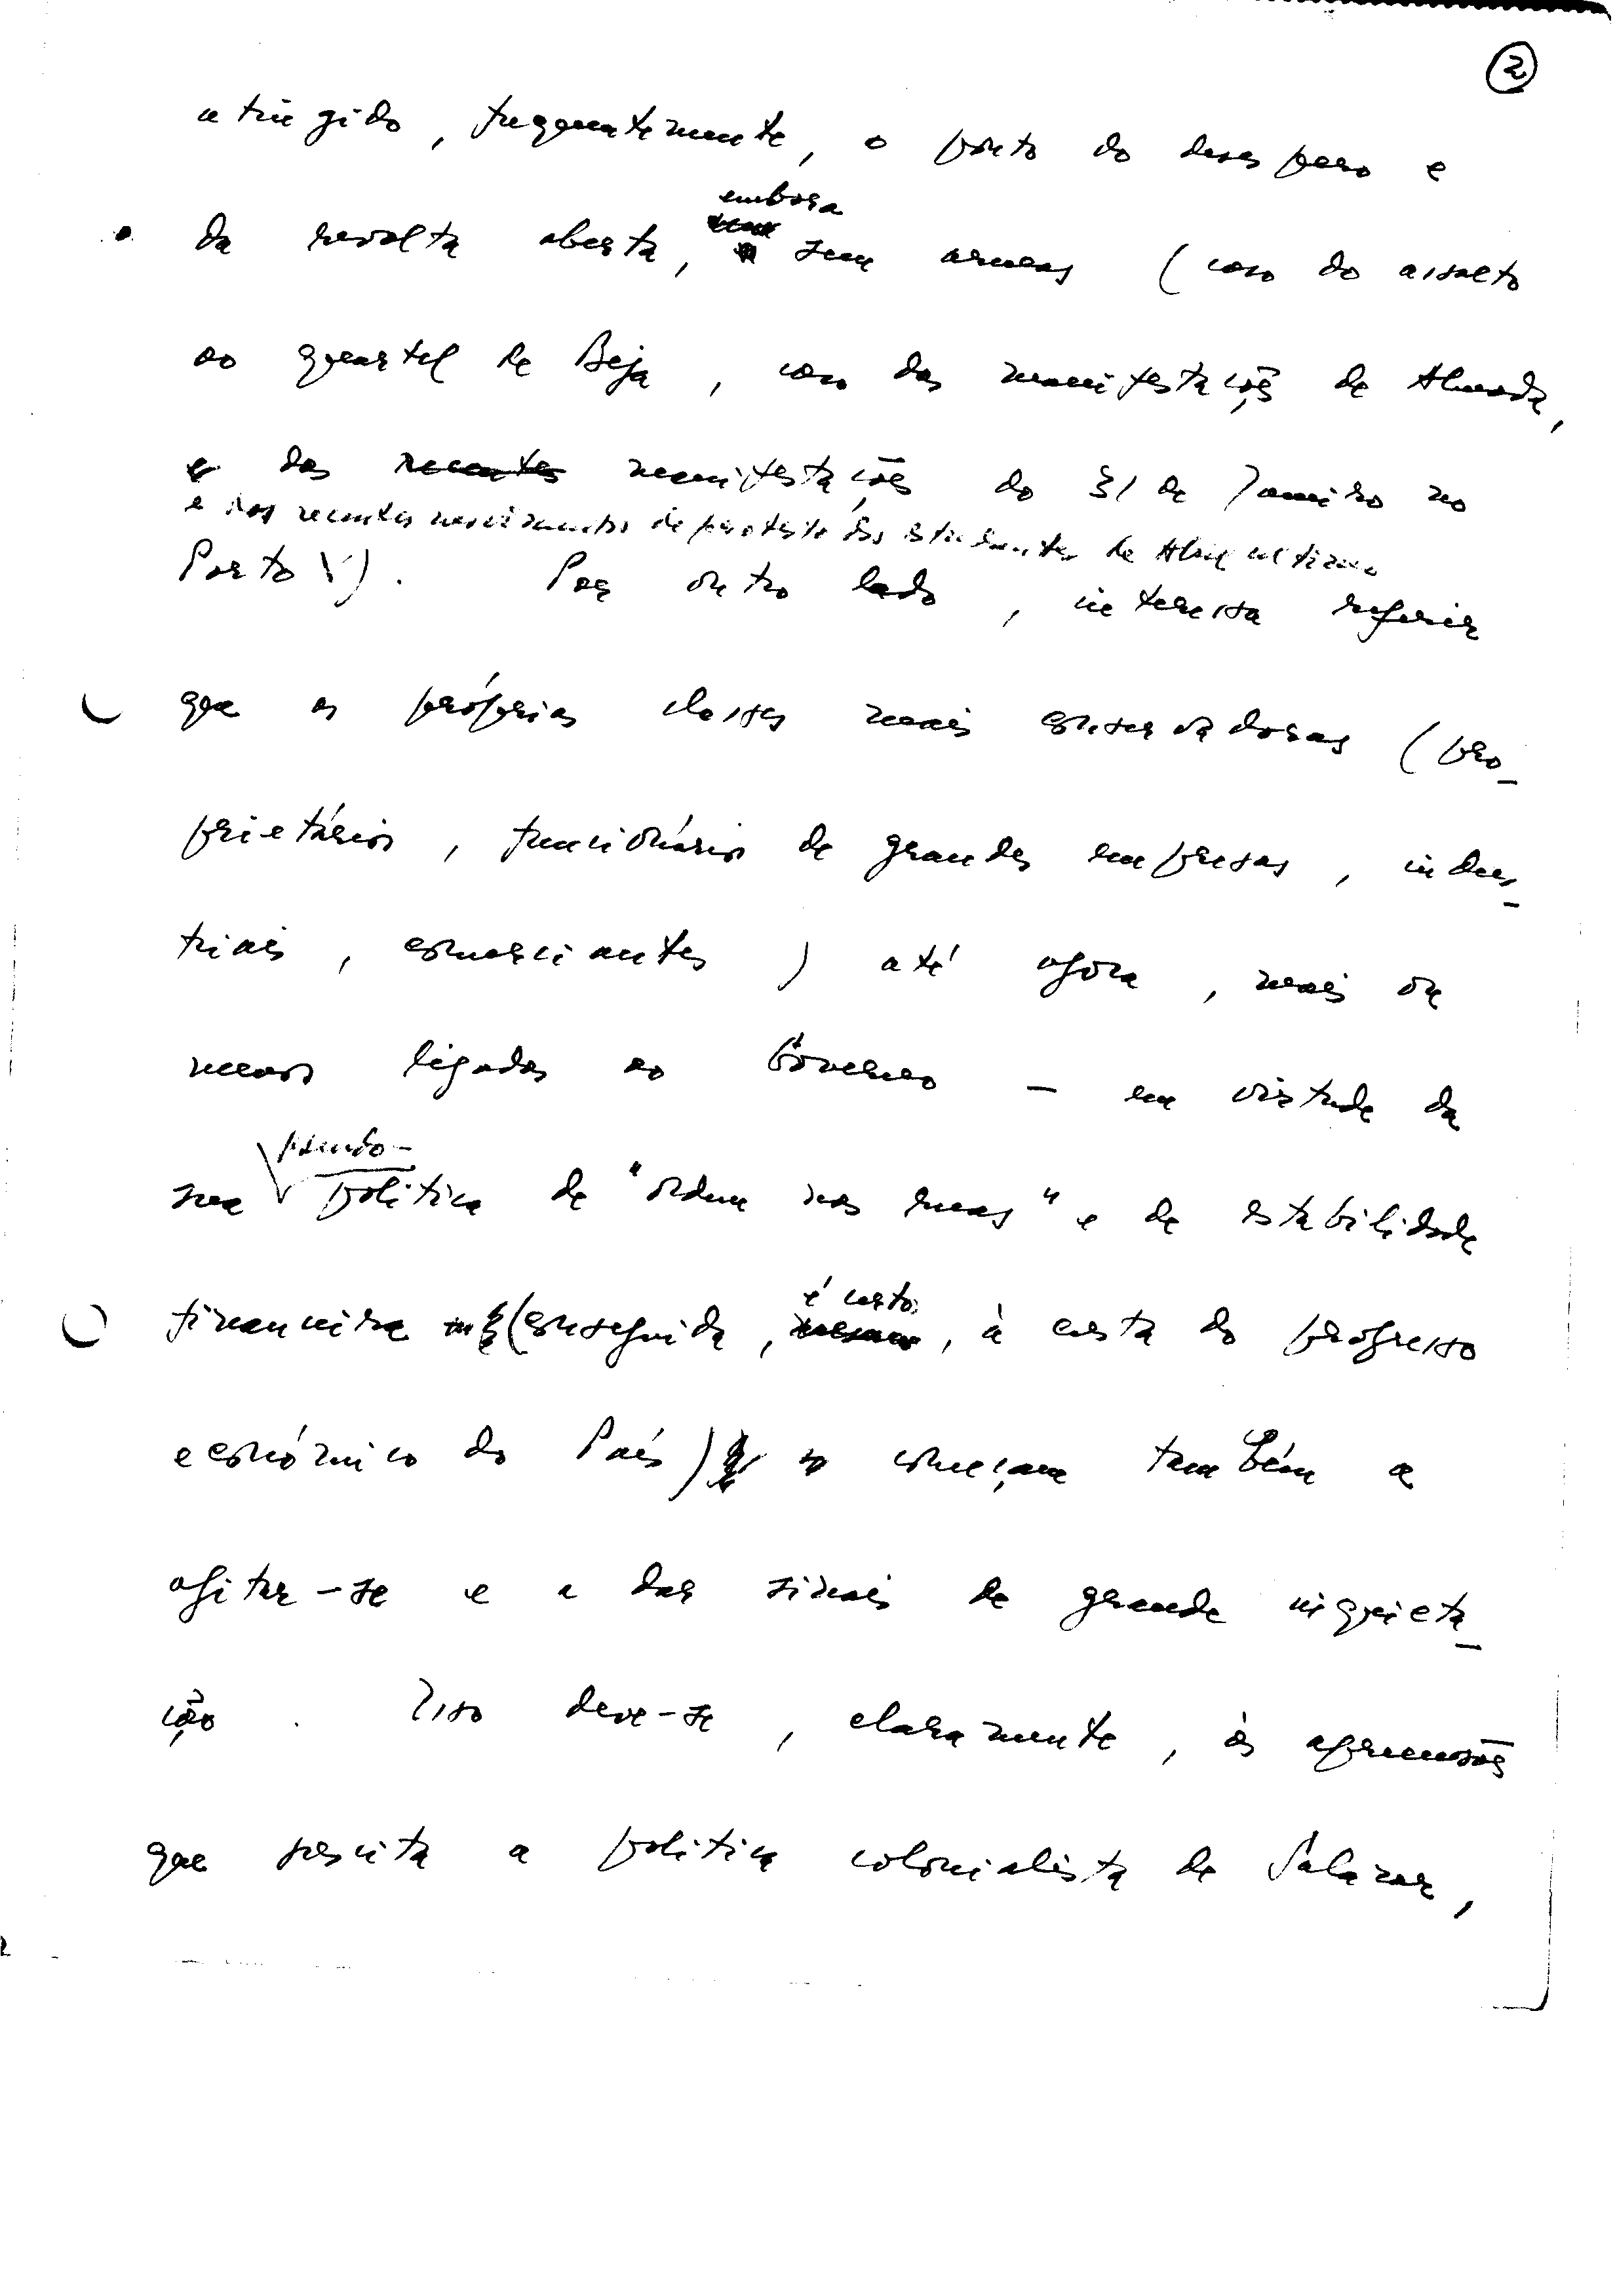 2
atingido, frequentemente, o ponto do desespero e
embora
da revolta aberta, sem armas (caso do assalto
ao quartel de Beja, caso das manifestações de Almada,
e das recentes manifestações do 31 de Janeiro no
e dos recentes movimentos de protesto dos estudantes de Abril último
Porto). Por outro lado, interessa referir
que as próprias classes mais conservadoras (pro-
prietários, funcionários de grandes empresas, indus-
triais, comerciantes) até agora, mais ou
menos ligadas ao Governo – em virtude da
pseudo-
sua política de "ordem nas ruas" e de estabilidade
é certo,
financeira (conseguida, , à custa do progresso
económico do País) começam também a
agitar-se e a dar sinais de grande inquieta-
ção. Isso deve-se, claramente, às apreensões
que suscita a política colonialista de Salazar,